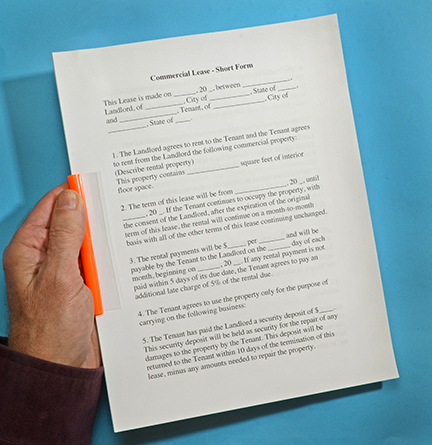 Commercial Lease - Short Form
This Lease is made on ______, 20 _, between ____________,
Landlord, of __________, City of __________, State of _____,
and ______________, Tenant, of _____________, City of
__________, State of ____.
1. The Landlord agrees to rent to the Tenant and the Tenant agrees
to rent from the Landlord the following commercial property:
(Describe rental property)
This property contains _____________ square feet of interior
floor space.
2. The term of this lease will be from _____________, 20 _, until
______, 20 _. If the Tenant continues to occupy the property, with
the consent of the Landlord, after the expiration of the original
term of this lease, the rental will continue on a month-to-month
basis with all of the other terms of this lease continuing unchanged.
3. The rental payments will be $_____ per _______ and will be
payable by the Tenant to the Landlord on the _______ day of each
month, beginning on ______, 20 _. If any rental payment is not
paid within 5 days of its due date, the Tenant agrees to pay an
additional late charge of 5% of the rental due.
4. The Tenant agrees to use the property only for the purpose of
carrying on the following business:
5. The Tenant has paid the Landlord a security deposit of $____.
This security deposit will be held as security for the repair of any
damages to the property by the Tenant. This deposit will be
returned to the Tenant within 10 days of the termination of this
lease, minus any amounts needed to repair the property.